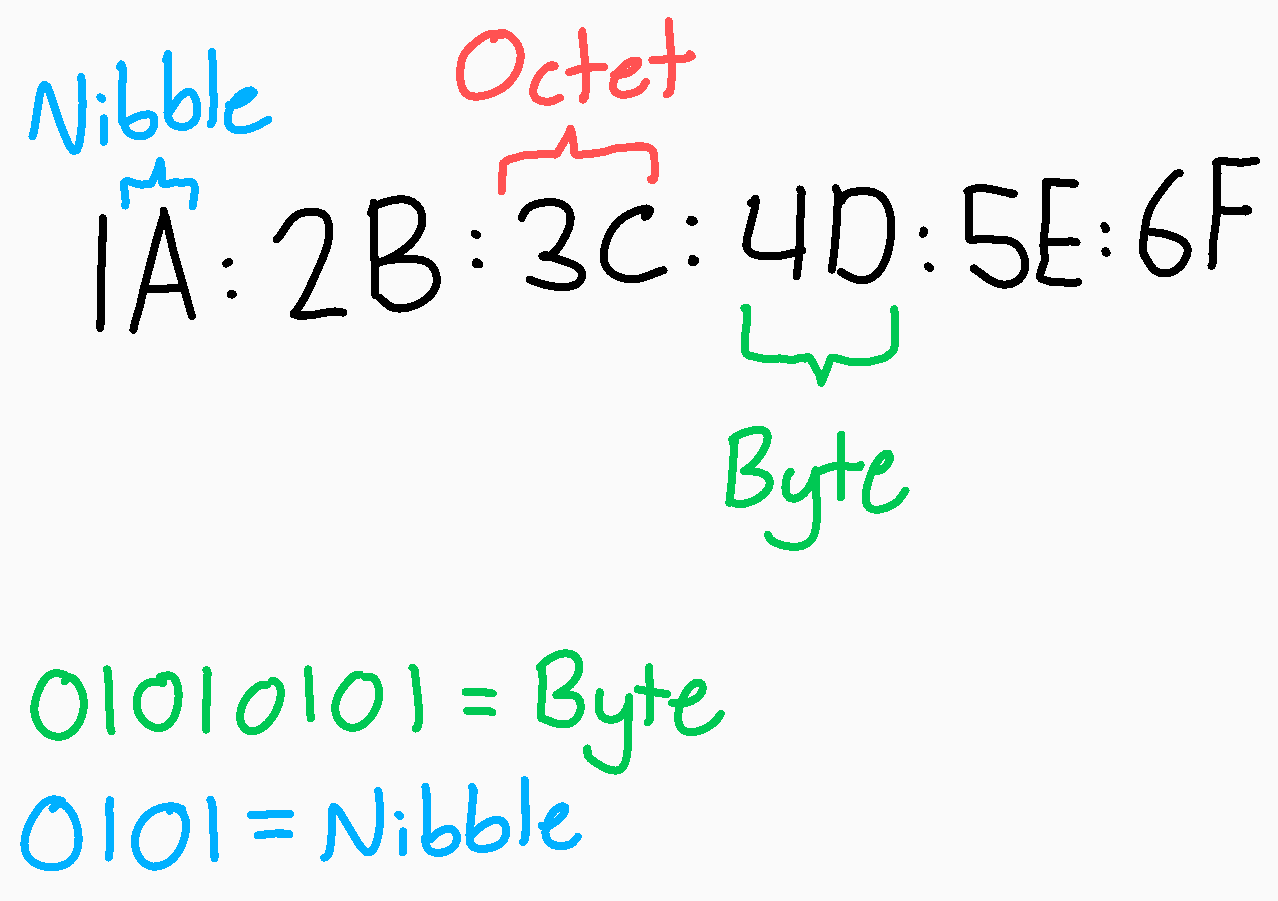 Nibble Octet
1A:2B:3C:4D:5E:6F
Byte
01010101 = Byte
0101 = Nibble